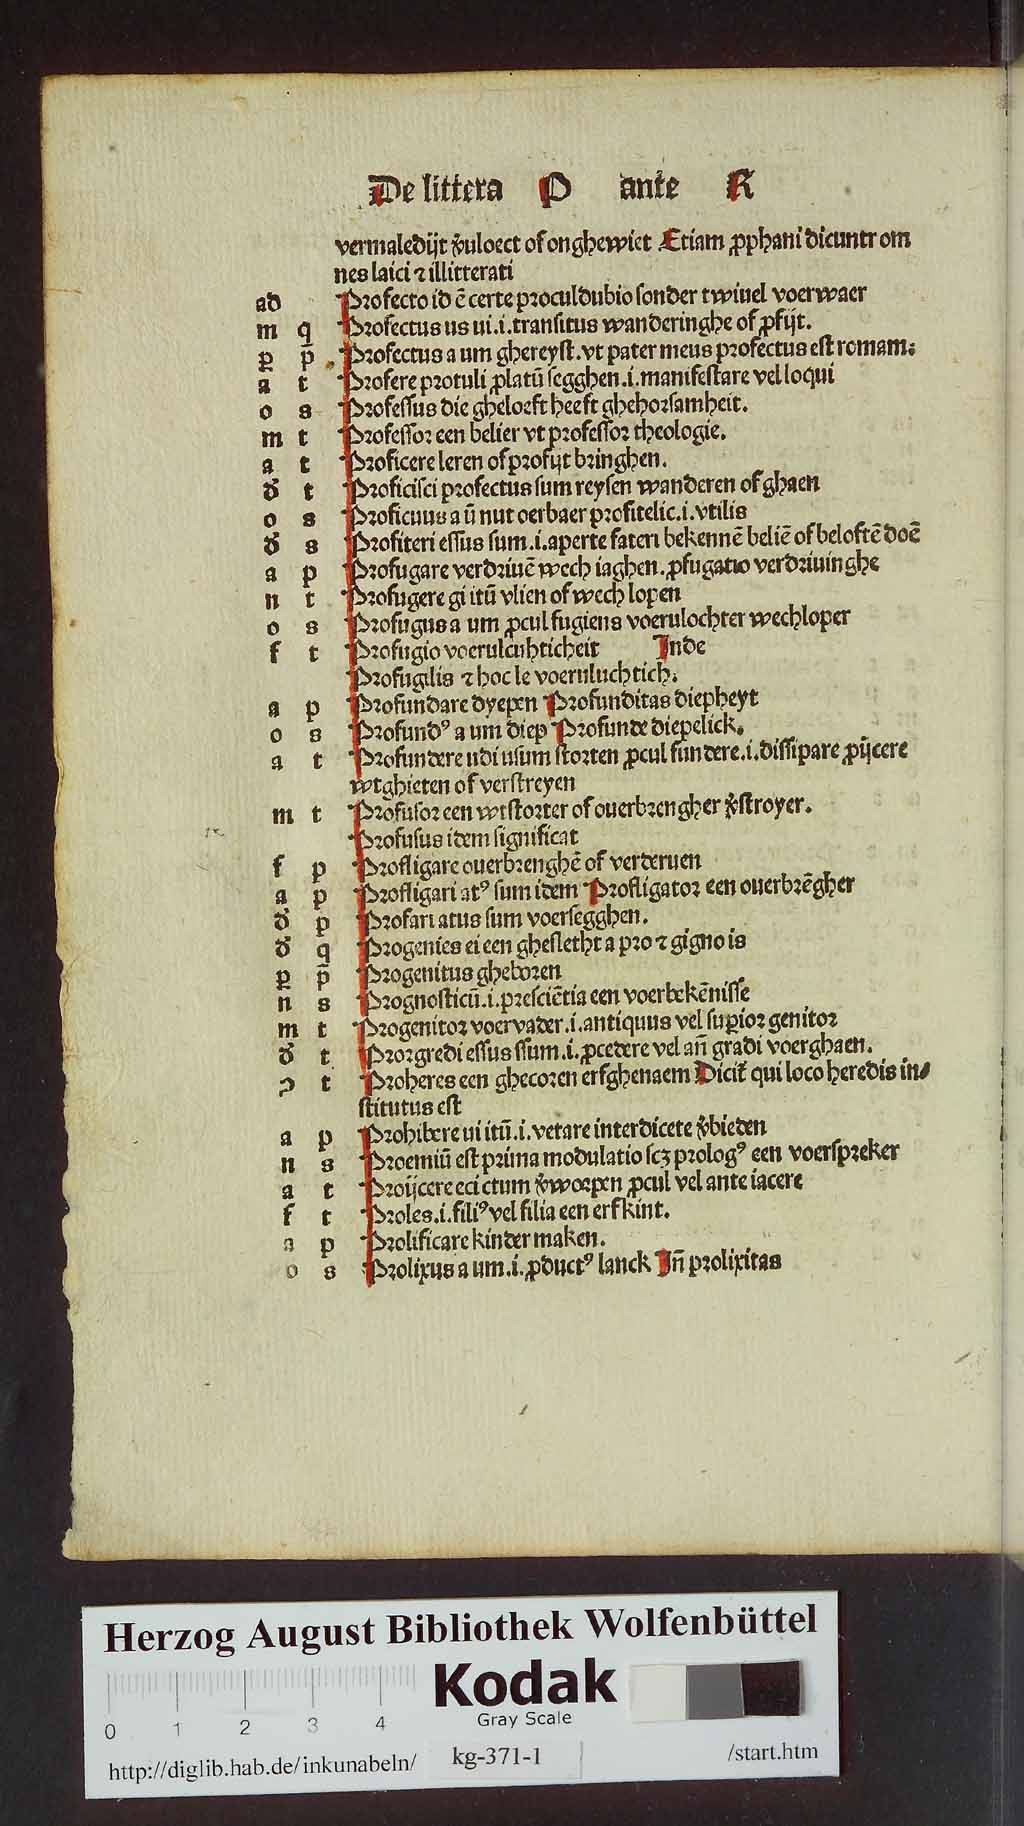 De littera P ante R
vermaledijt v̉uloect of onghewiet Etiam ꝓphani dicuntr om
nes laici ⁊ illitterati
ad Profecto id ē certe proculdubio sonder twiuel voerwaer
m q Profectus us ui .i. transitus wanderinghe of ꝓfijt.
p p̄ Profectus a um ghereyst. vt pater meus profectus est romam:
a t Profere protuli ꝓlatū segghen .i. manifestare vel loqui
o s Professus die gheloeft heeft ghehorsamheit.
m t Professor een belier vt professor theologie.
a t Proficere leren of profijt bringhen.
d̉ t Proficisci profectus sum reysen wanderen of ghaen
o s Proficuus a ū nut oerbaer profitelic .i. vtilis
d̉ s Profiteri essus sum .i. aperte fateri bekennē beliē of beloftē doē
a p Profugare verdriuē wech iaghen. ꝓfugatio verdriuinghe
n t Profugere gi itū vlien of wech lopen
o s Profugus a um ꝓcul fugiens voerulochter wechloper
f t Profugio voerulcuhticheit Inde
Profugilis ⁊ hoc le voeruluchtich.
a p Profundare dyepen Profunditas diepheyt
o s Profundꝰ a um diep Profunde diepelick.
a t Profundere udi usum storten ꝓcul fundere .i. dissipare ꝓijcere
wtghieten of verstreyen
m t Profusor een wtstorter of ouerbrengher v̉stroyer.
Profusus idem significat
f p Profligare ouerbrenghē of verderuen
a p Profligari atꝰ sum idem Profligator een ouerbrēgher
d̉ p Profari atus sum voersegghen.
d̉ q Progenies ei een ghesletht a pro ⁊ gigno is
p p̄ Progenitus gheboren
n s Prognosticū .i. presciētia een voerbekēnisse
m t Progenitor voervader .i. antiquus vel supior genitor
d̉ t Prorgredi essus ssum .i. ꝓcedere vel an̄ gradi voerghaen.
ꝯ t Proheres een ghecoren erfghenaem Dicit᷑ qui loco heredis in⸗
stitutus est
a p Prohibere ui itū .i. vetare interdicete v̉bieden
n s Proemiū est prima modulatio scꝫ prologꝰ een voerspreker
a t Proijcere eci ctum v̉worpen ꝓcul vel ante iacere
f t Proles .i. filiꝰ vel filia een erfkint.
a p Prolificare kinder maken.
o s Prolixus a um .i. ꝓductꝰ lanck In̄ prolixitas
Herzog August Bibliothek Wolfenbüttel
Kodak
Gray Scale
0 1 2 3 4
http://diglib.hab.de/inkunabeln/ kg-371-1 /start.htm